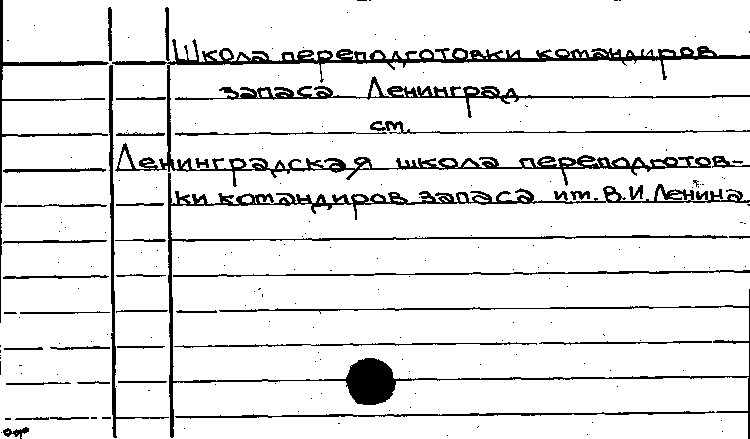 Школа переподготовки командиров
запаса. Ленинград.
см.
Ленинградская школа переподготов-
ки командиров запаса им. В.И. Ленина